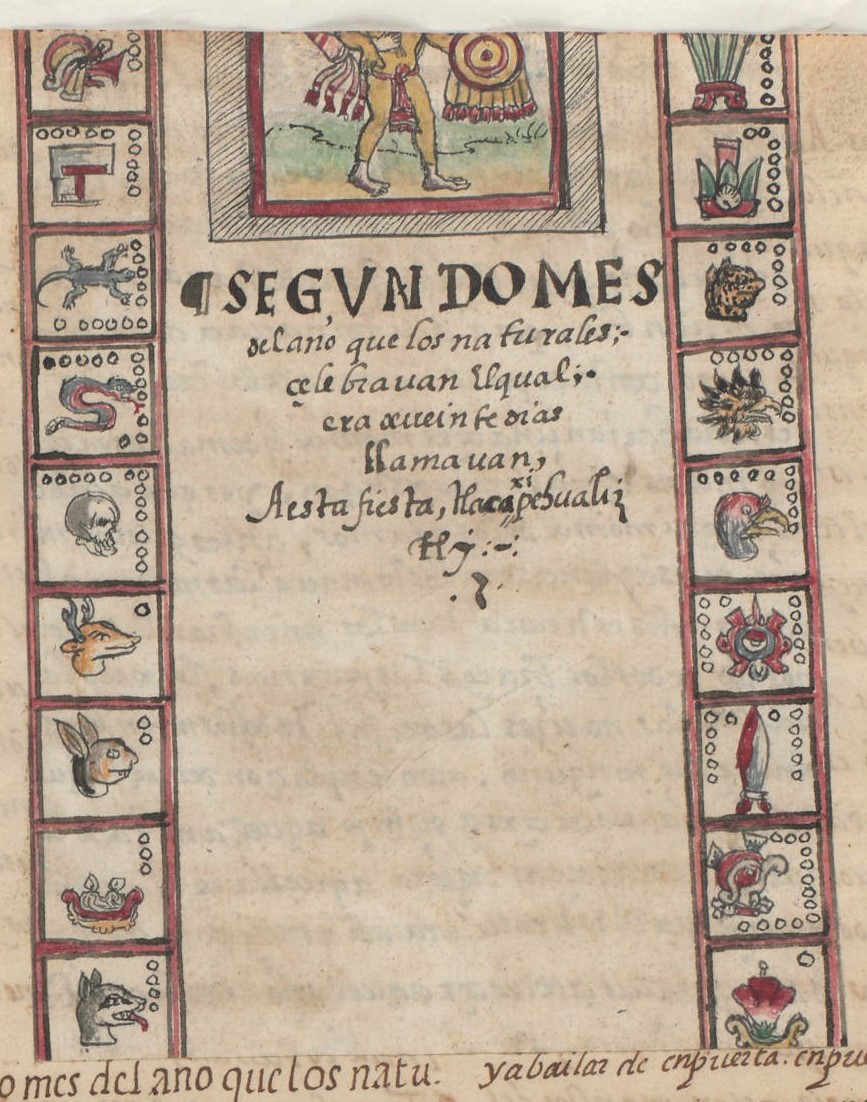 ¶SEGVNDO MES
del año que los naturales;-
çelebrauan Elqual;-
era aueinte dias
llamauan,
Aesta fiesta, tlacaxipehualiz
tly:-:
o mes del ano que los natu.
yabailar de enpuerta. enpue